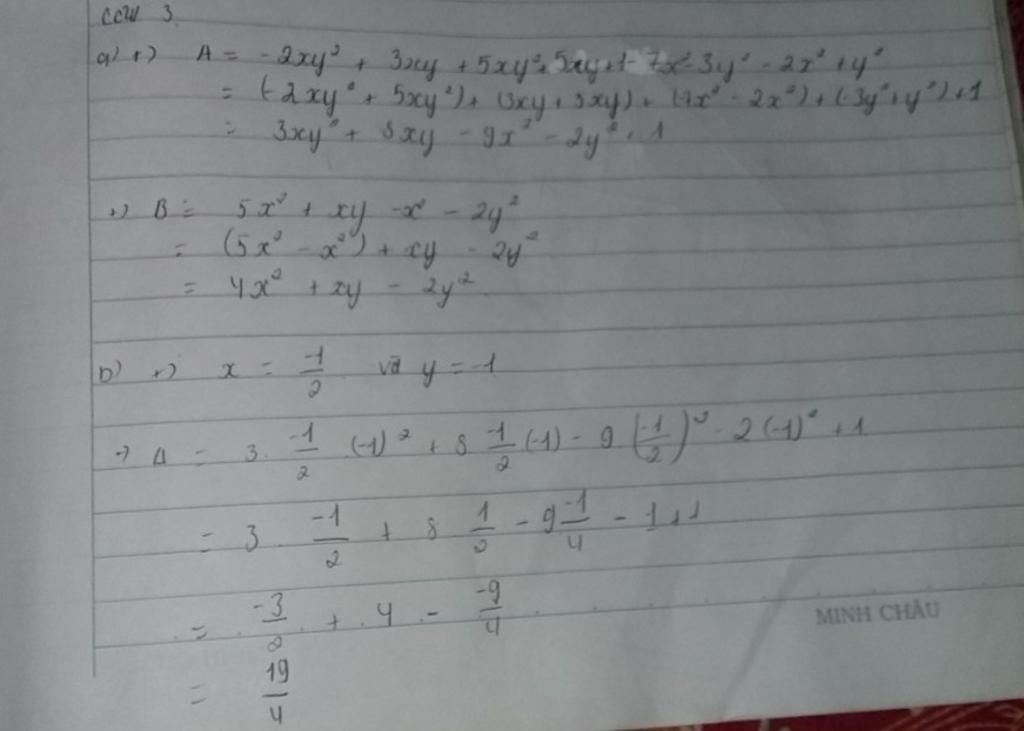 Câu 3
a) +) A = -2xy² + 3xy + 5xy² + 5xy + 1 - 7x² - 3y² - 2x² + y²
= (-2xy² + 5xy²) + (3xy + 5xy) + (-7x² - 2x²) + (-3y² + y²) + 1
= 3xy² + 8xy - 9x² - 2y² + 1
+) B = 5x² + xy - x² - 2y²
= (5x² - x²) + xy - 2y²
= 4x² + xy - 2y²
b) +) x = -1/2 và y = -1
-> A = 3. -1/2 (-1)² + 8 -1/2 (-1) - 9 (-1/2)² - 2(-1)² + 1
= 3 . -1/2 + 8 1/2 - 9 -1/4 - 1 + 1
= -3/2 + 4 - -9/4
MINH CHÂU
= 19/4